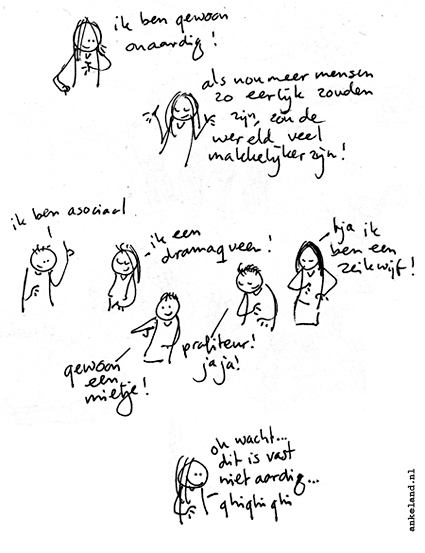 ik ben gewoon
onaardig!
als nou meer mensen
zo eerlijk zouden
zijn, zou de
wereld veel
makkelijker zijn!
ik ben asociaal
ik een
dramaqueen!
tja ik
ben een
zeikwijf!
gewoon
een
mietje!
profiteur!
jaja!
oh wacht...
dit is vast
niet aardig...
ghighighi
ankeland.nl